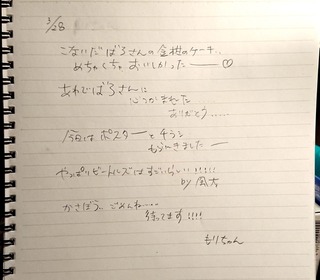 2/28
こないだばろさんの金柑のケーキ、
めちゃくちゃおいしかったー♡
あれでばろさんに
心つかまれた
ありがとう……
今日はポスターとチラシ
もらいきましたー
やっぱりビートルズはすごいらしい!!!!!
by 風太
かさぼう、ごめんね….
待ってます!!!!
もりちゃん